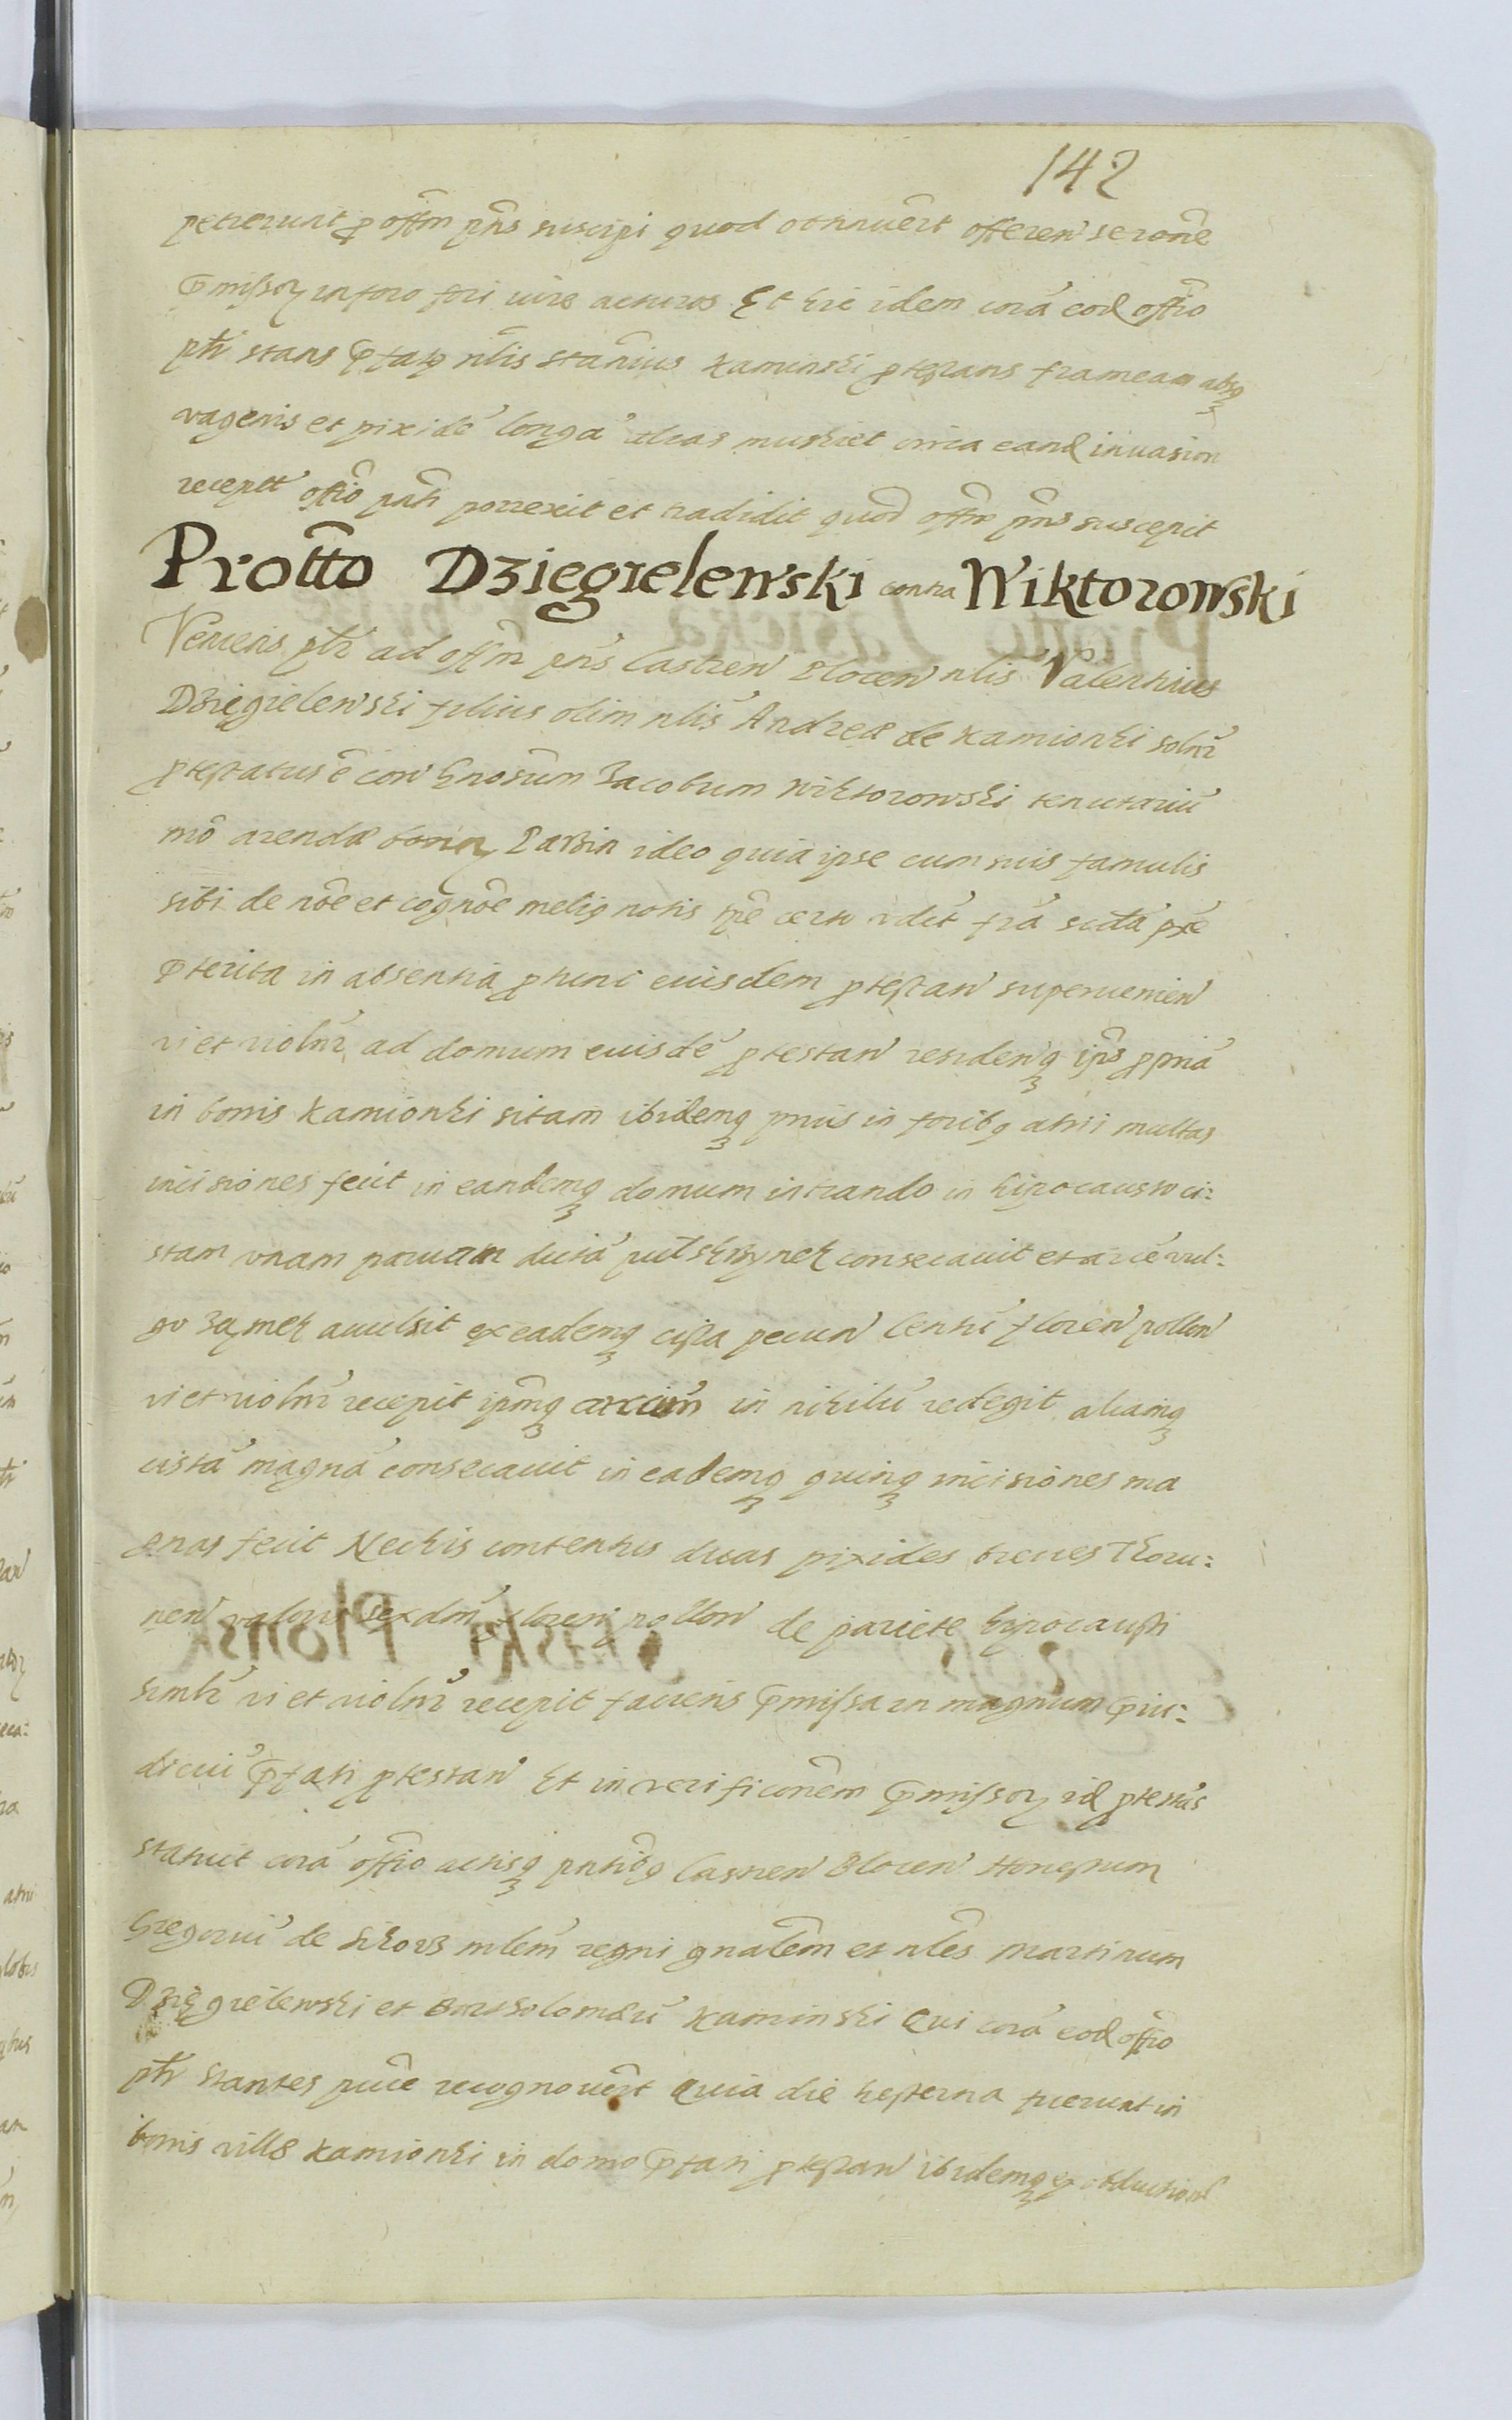 142
petierunt p offm pns suscipi quod obtinuert offeren se rone
pmissorz in foro fori iure acturos Et hic idem corā eod offio
pltr stans pfatq nlis stanius Kaminski ptestans frameam absqz
vagenis et pixidē longā alias muskiet circa eand inuasion
recepit offio pnti porrexit et tradidit quod offm pns suscepit
Protto Dziegielewski contra Wiktorowski
Veniens pltr ad offm pns Castren Plocen nlis Valentinus
Dziegielewski filius olim nlis Andreæ de Kamionki solnr
ptestatus ē con Gnosum Jacobum Wiktorowski tenutariū
mō arendæ bonorz Parzin ideo quia ipse cum suis famulis
sibi de noē et cognoē meliq notis tpē certo vdlt fria scda pxe
pterita in absentia ptunc eiusdem ptestan superuenien
vi et violnr ad domum eiusdē ptestan residenqz ipis ppriā
in bonis Kamionki sitam ibidemqz prius in foribq atrii multas
incisiones fecit in eandemqz domum intrando in hipocausto ci:
stam vnam paruam dictā pult skrzynek consecauit et arcē vul:
go zamek auulsit ex eademqz cista pecun Centū floren pollon
vi et violnr recepit ipmqz arcium in nihilū redegit aliamqz
cistā magnā consecauit in eademqz quinqz incisiones ma
gnas fecit Nec his contentus duas pixides breues Thoru:
nen valoris sex dm floren pollon de pariete hipocausti
simlr vi et violnr recepit faciens pmissa in magnum piu:
diciū pfati ptestan Et in verificonem pmissorz id ptestās
statuit corā offio actisqz pntibq Castren Plocen Honestum
Gregoriū de Sikorz mlem regni gnalem et nles Martinum
Dziegielewski et Bartholomæū Kaminski Qui corā eod offio
pltr stantes puce recognouert Quia die hesterna fuerunt in
bonis villæ Kamionki in domo pfati ptestan ibidemqz ex obductione